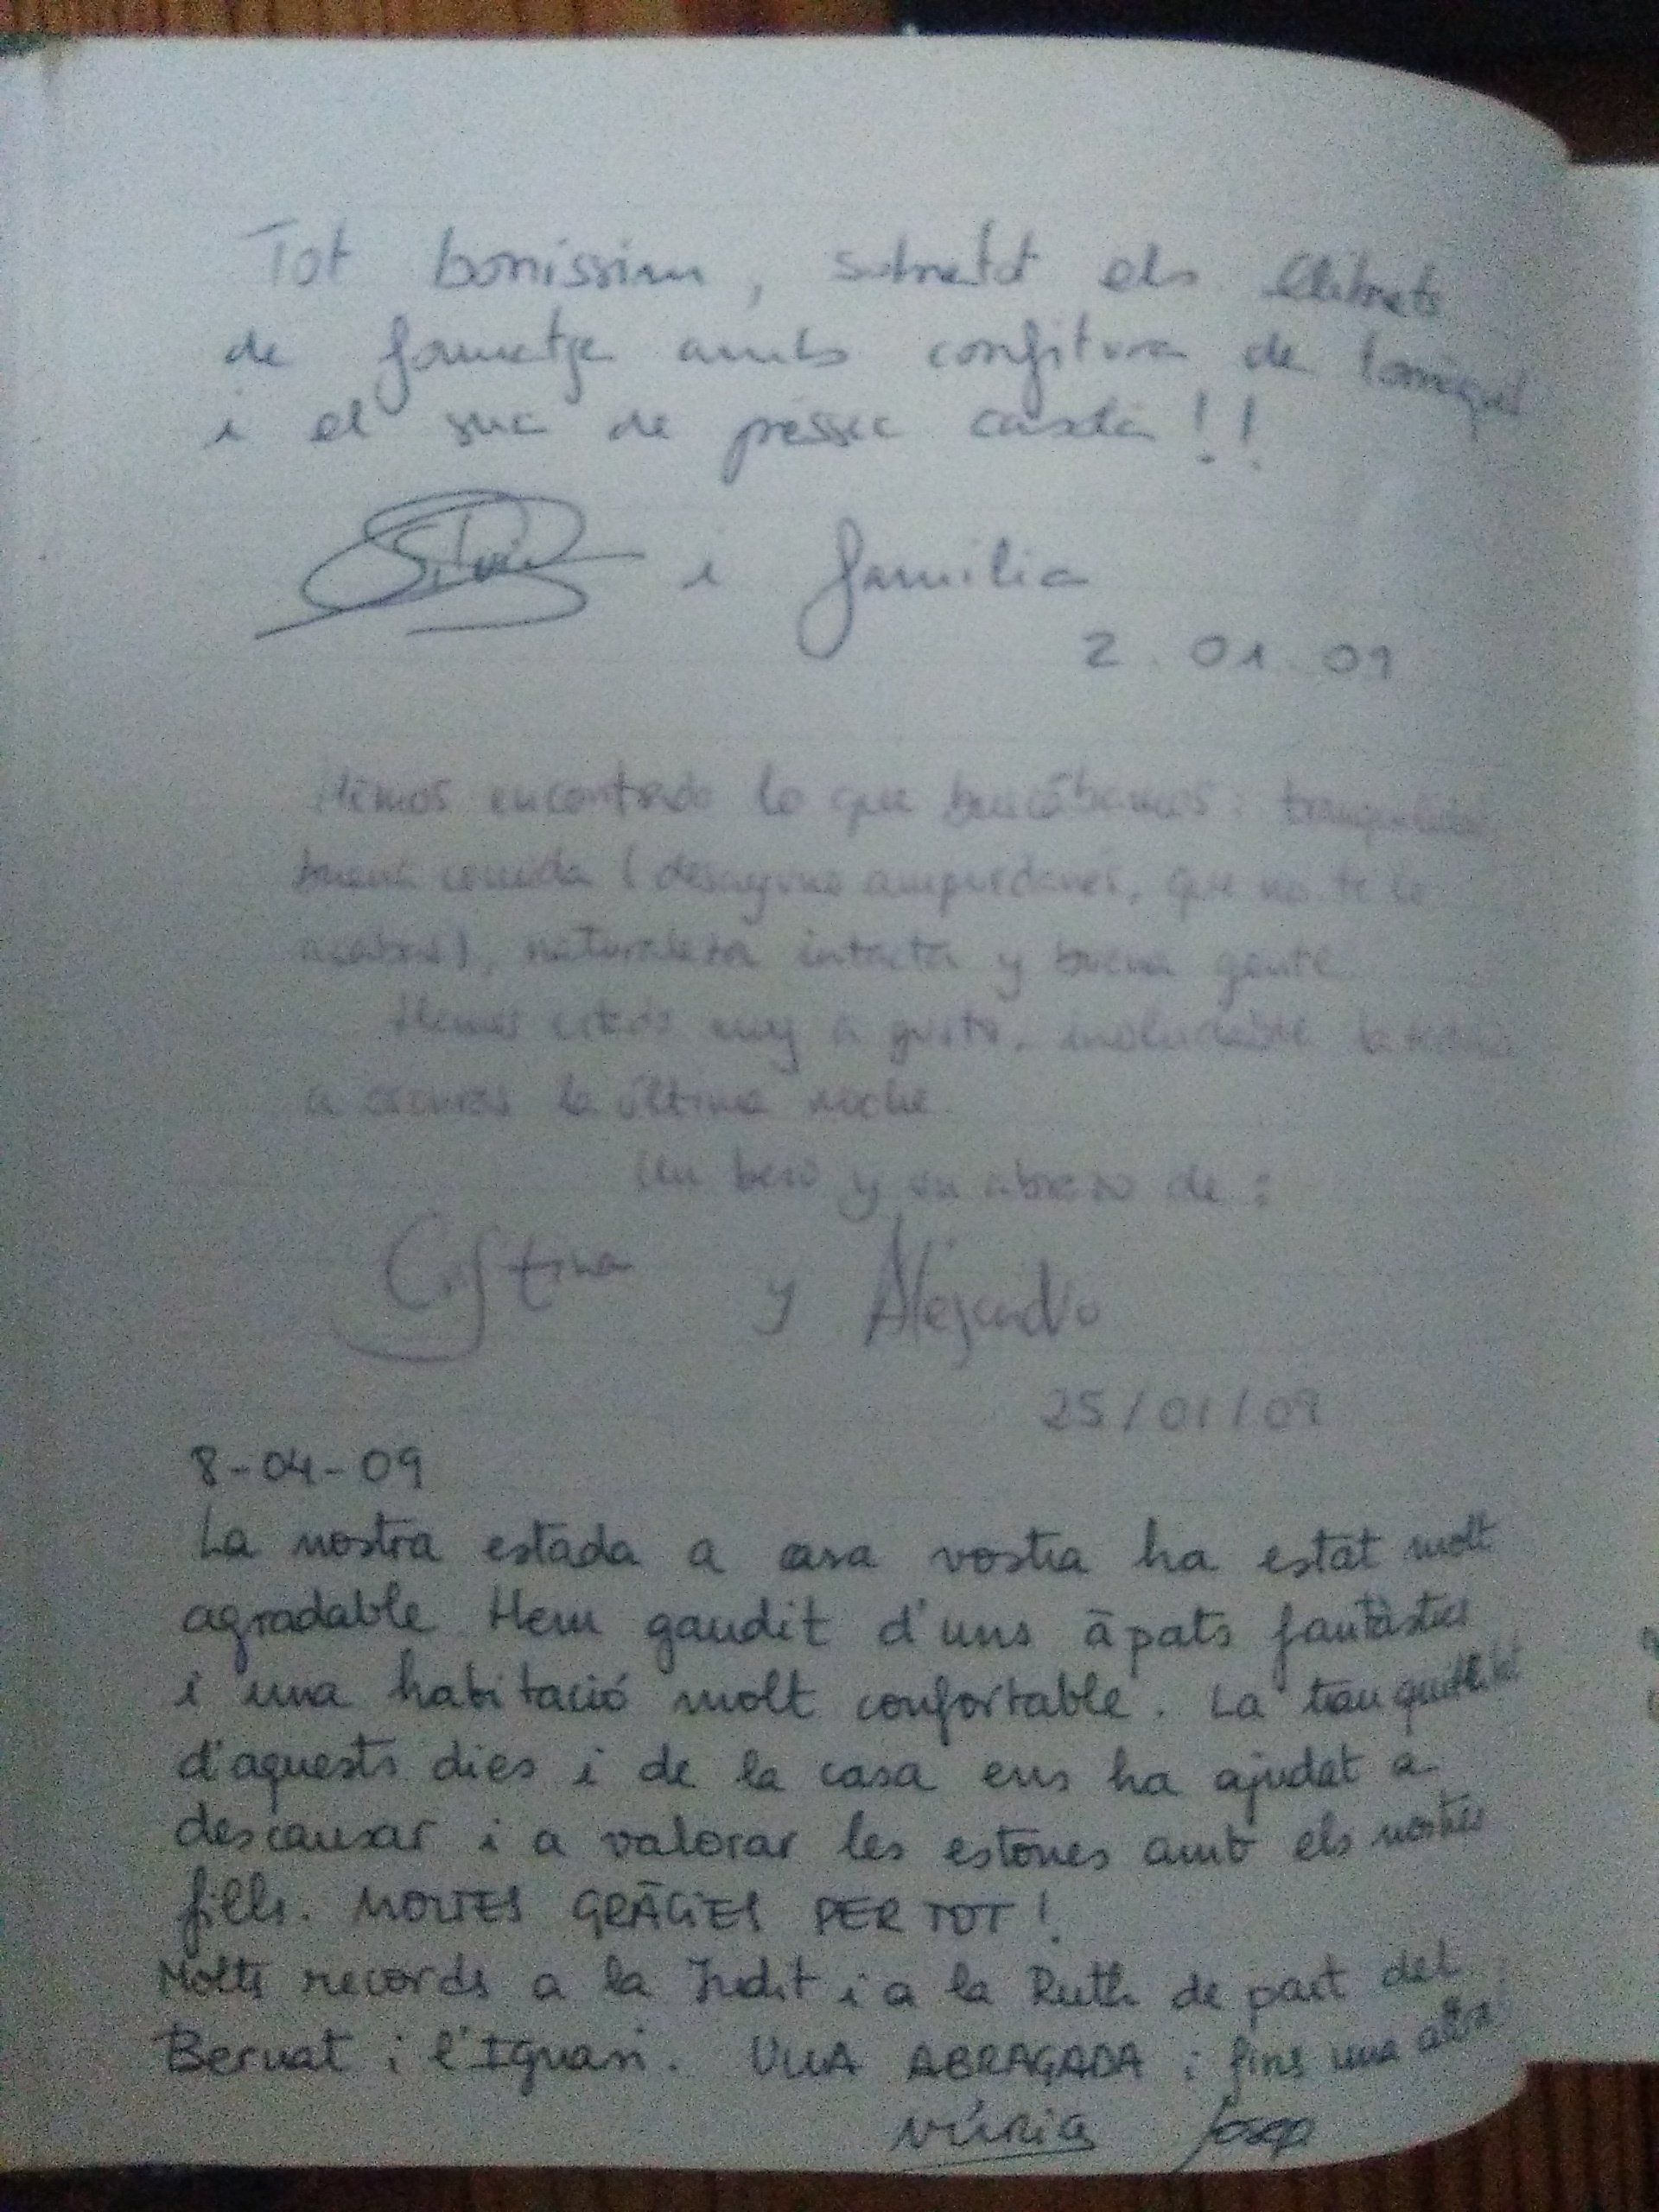 Tot boníssim, sobretot els llibrets
de formatge amb confitura de tomàquet
i el suc de préssec casolà!!
Sílvia i família
2.01.09
Hemos encontrado lo que buscábamos: tranquilidad,
buena comida (desayuno ampurdanés, que no te lo
acabas), naturaleza intacta y buena gente
Hemos estado muy a gusto.
a oscuras la última noche.
Un beso y un abrazo de:
Cristina y Alejandro
25/01/09
8-04-09
La nostra estada a casa vostra ha estat molt
agradable Hem gaudit d'uns àpats fantàstics
i una habitació molt confortable. La tranquil·litat
d'aquests dies i de la casa ens ha ajudat a
descansar i a valorar les estones amb els nostres
fills. MOLTES GRÀCIES PER TOT!
Molts records a la Judit i a la Ruth de part del
Bernat i l'Ignasi. UNA ABRAÇADA i fins una altra
Núria Josep